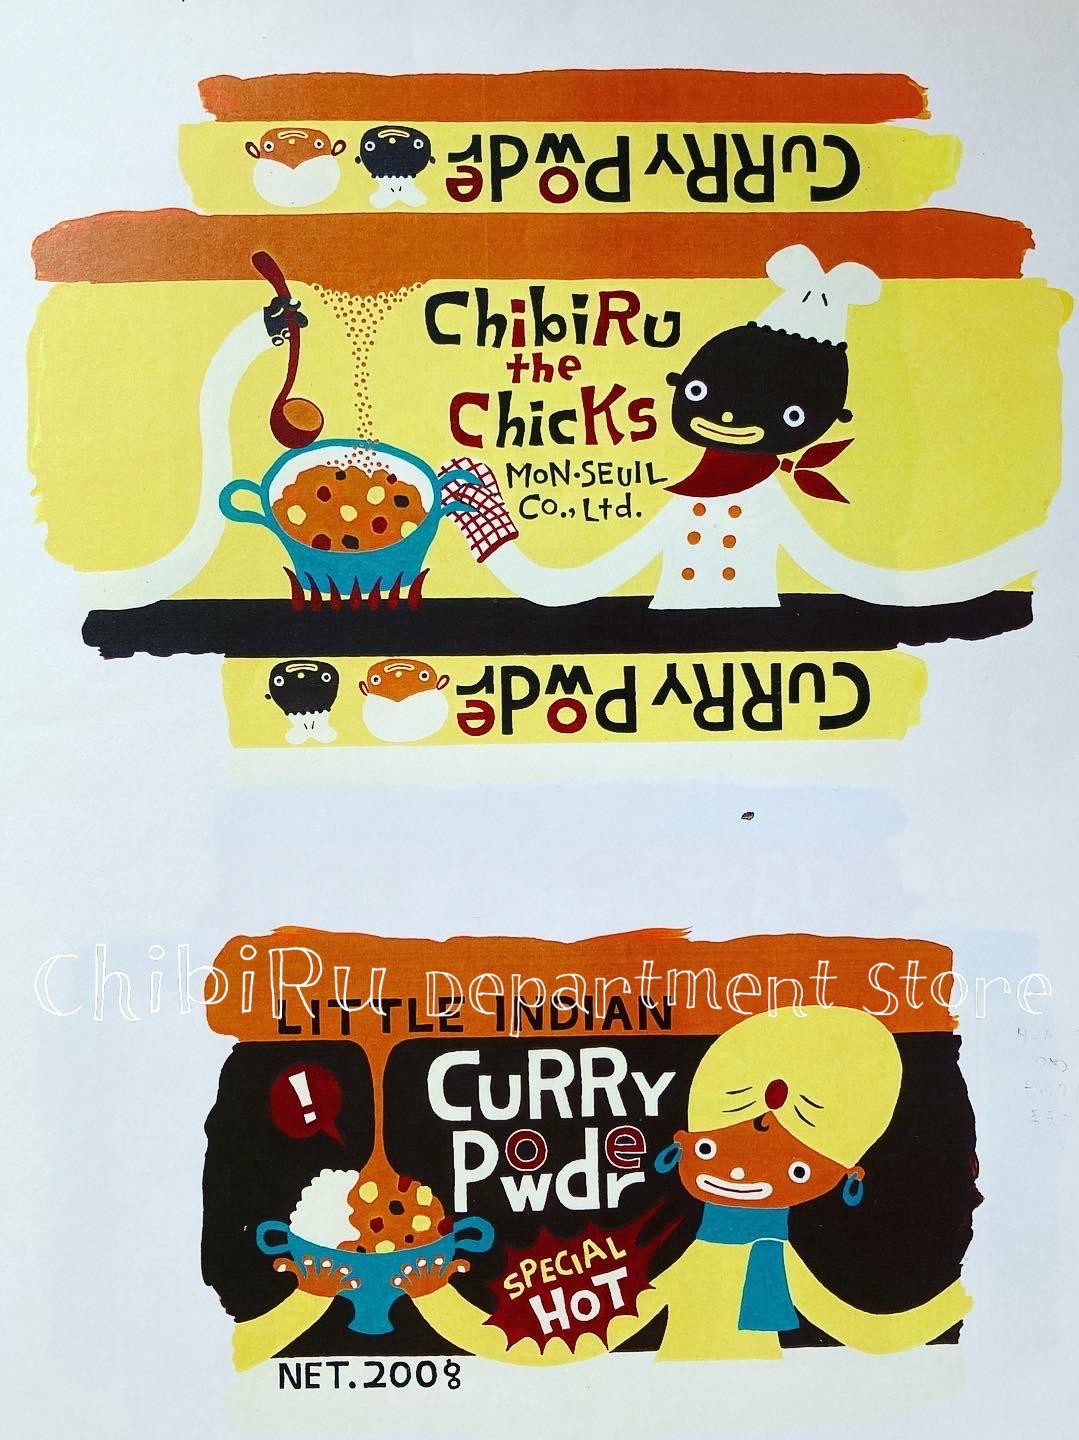 CuRRy Powder
ChibiRu
the
ChicKs
MON·SEUIL
Co., Ltd.
CuRRy Powder
ChibiRu Department Store
LITTLE INDIAN
!
CuRRy
Powder
SPECIAL
HOT
NET.200g